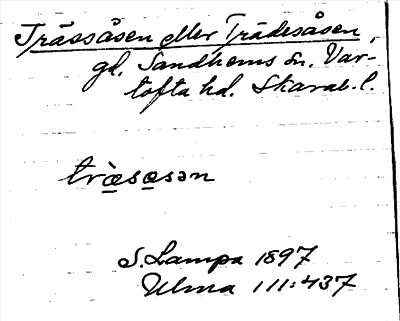 Trässåsen eller Trädesåsen,
gl. Sandhems sn. Var-
tofta hd. Skarab. l.
træ̀sɑsən
S. Lampa 1897
Ulma 111:437